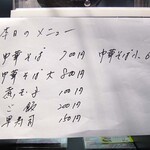 本日のメニュー
中華そば 700円
中華そば大 800円
煮玉子 100円
ご飯 200円
早寿司 150円
中華そば小 6